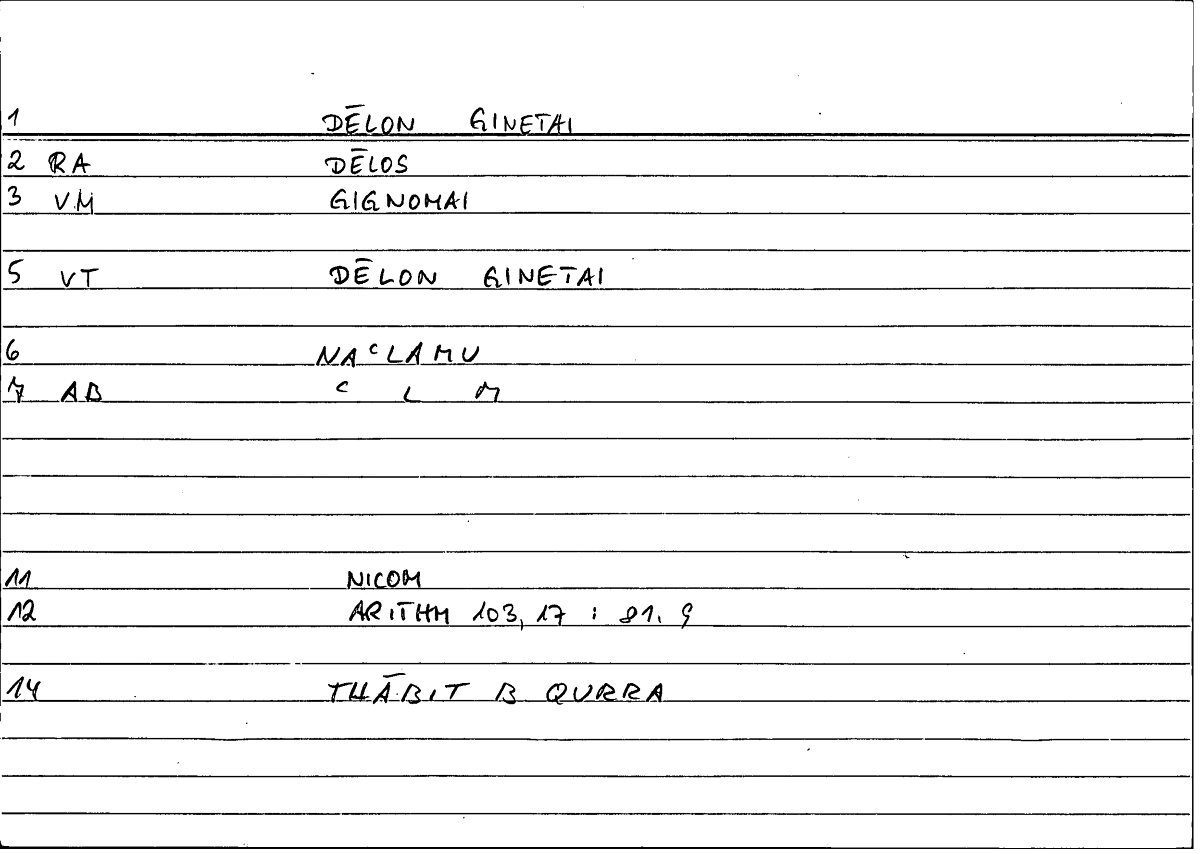 1 DĒLON GINETAI
2 RA DĒLOS
3 VM GIGNOMAI
5 VT DĒLON GINETAI
6 NAᶜLAMU
7 AB ᶜ L M
11 NICOM
12 ARITHM 103, 17 : 81. 9
14 THĀBIT B QURRA